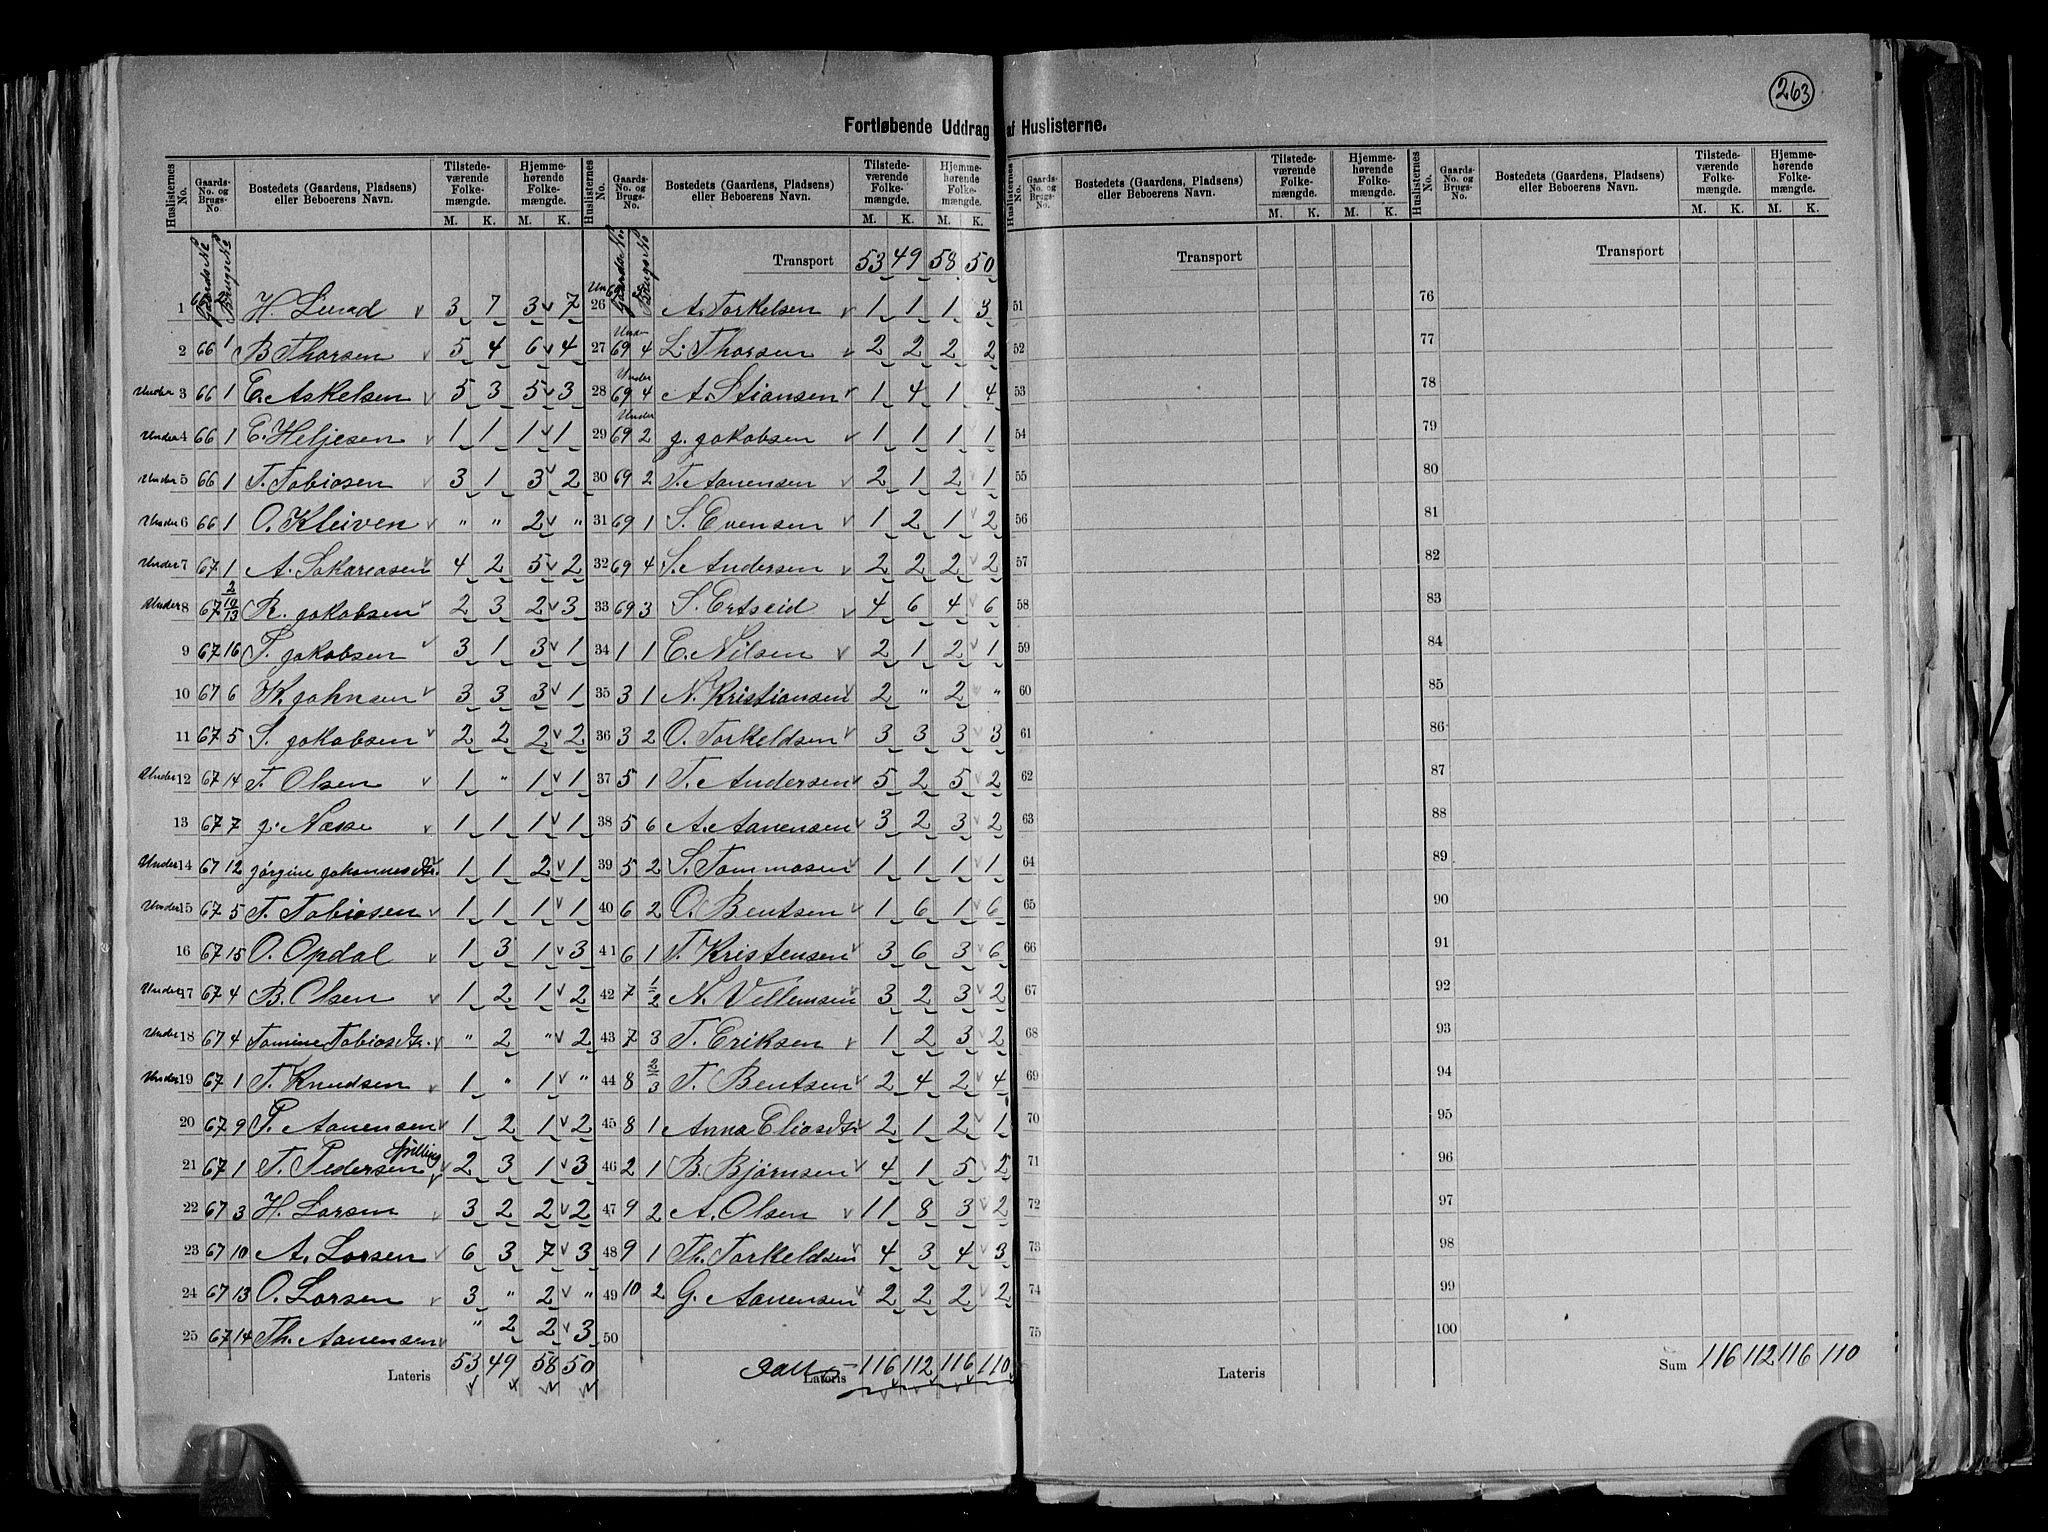 263
Fortløbende Uddrag af Huslisterne.
Huslisternes No. Gaards-No. og Brugs-No. Bostedets (Gaardens, Pladsens) eller Beboerens Navn. Tilstedeværende Folkemængde. M. K. Hjemmehørende Folkemængde. M. K.
Gaards No Brugs No
1 H. Lunad 3 7 3 7
2 66 1 B Thorsen 5 4 6 4
Under 3 66 1 E. Askelsen 5 3 5 3
Under 4 66 1 E. Heljesen 1 1 1 1
Under 5 66 1 T. Tobiasen 3 1 3 2
Under 6 66 1 O. Kleiven " " 2 "
Under 7 67 1 A. Sakariasen 4 2 5 2
Under 8 67 2/10/13 R. Jakobsen 2 3 2 3
9 67 16 P. Jakobsen 3 1 3 1
10 67 6 K. Johnsen 3 3 3 1
11 67 5 S. Jakobsen 2 2 2 2
Under 12 67 14 T. Olsen 1 " 1 1
13 67 7 J. Næse 1 1 1 1
Under 14 67 12 Jørgine Johannesdtr. 1 1 2 1
Under 15 67 5 T. Tobiasen 1 1 1 1
16 67 15 O. Opdal 1 3 1 3
Under 17 67 4 B. Olsen 1 2 1 2
Under 18 67 4 Tomine Tobiasdtr. " 2 " 2
Under 19 67 1 T. Knudsen 1 " 1 "
20 67 9 P. Aanensen 1 2 1 2
21 67 1 T. Pedersen 2 3 1 3
22 67 3 H. Larsen 3 2 2 2
23 67 10 A. Larsen 6 3 7 3
24 67 13 O. Larsen 3 " 2 "
25 67 14 Th. Aanensen " 2 2 3
Lateris 53 49 58 50
Huslisternes No. Gaards-No. og Brugs-No. Bostedets (Gaardens, Pladsens) eller Beboerens Navn. Tilstedeværende Folkemængde. M. K. Hjemmehørende Folkemængde. M. K.
Gaards No Brugs No Transport 53 49 58 50
26 A. Torkelsen 1 1 1 3
Under 27 69 4 L. Thorsen 2 2 2 2
Under 28 69 4 A. Stiansen 1 4 1 4
Under 29 69 2 J. Jakobsen 1 1 1 1
30 69 2 T. Aanensen 2 1 2 1
31 69 1 S. Evensen 1 2 1 2
32 69 4 S. Andersen 2 2 2 2
33 69 3 S. Ertseid 4 6 4 6
34 1 1 E. Nilsen 2 1 2 1
35 3 1 N. Kristiansen 2 " 2 "
36 3 2 O. Torkeldsen 3 3 3 3
37 5 1 T. Andersen 5 2 5 2
38 5 6 A. Aanensen 3 2 3 2
39 5 2 S. Tommasen 1 1 1 1
40 6 2 O. Bentsen 1 6 1 6
41 6 1 T. Kristensen 3 6 3 6
42 7 1/2 N. Villemsen 3 2 3 2
43 7 3 T. Eriksen 1 2 3 2
44 8 2/3 T. Bentsen 2 4 2 4
45 8 1 Anna Eliasdtr 2 1 2 1
46 2 1 B. Bjørnsen 4 1 5 2
47 9 2 A. Olsen 11 8 3 2
48 9 1 Th. Torkeldsen 4 3 4 3
49 10 2 G. Aanensen 2 2 2 2
50
Lateris 116 112 116 110
Huslisternes No. Gaards-No. og Brugs-No. Bostedets (Gaardens, Pladsens) eller Beboerens Navn. Tilstedeværende Folkemængde. M. K. Hjemmehørende Folkemængde. M. K.
Transport
51
52
53
54
55
56
57
58
59
60
61
62
63
64
65
66
67
68
69
70
71
72
73
74
75
Lateris
Huslisternes No. Gaards-No. og Brugs-No. Bostedets (Gaardens, Pladsens) eller Beboerens Navn. Tilstedeværende Folkemængde. M. K. Hjemmehørende Folkemængde. M. K.
Transport
76
77
78
79
80
81
82
83
84
85
86
87
88
89
90
91
92
93
94
95
96
97
98
99
100
Sum 116 112 116 110